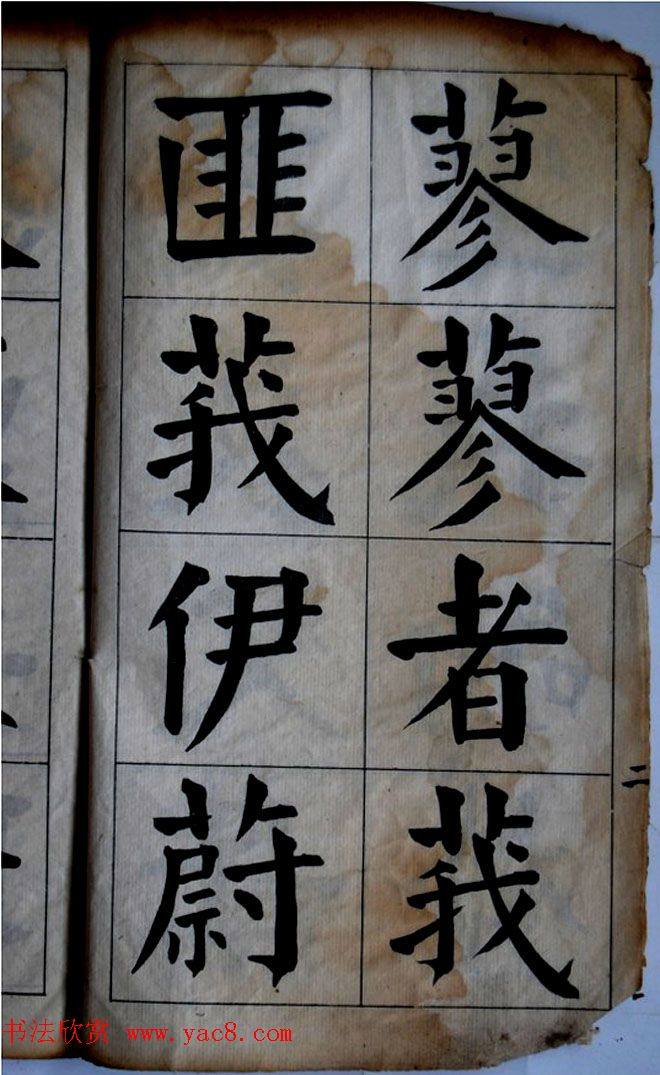 蓼蓼者莪
匪莪伊蔚
二
书法欣赏 www.yac8.com